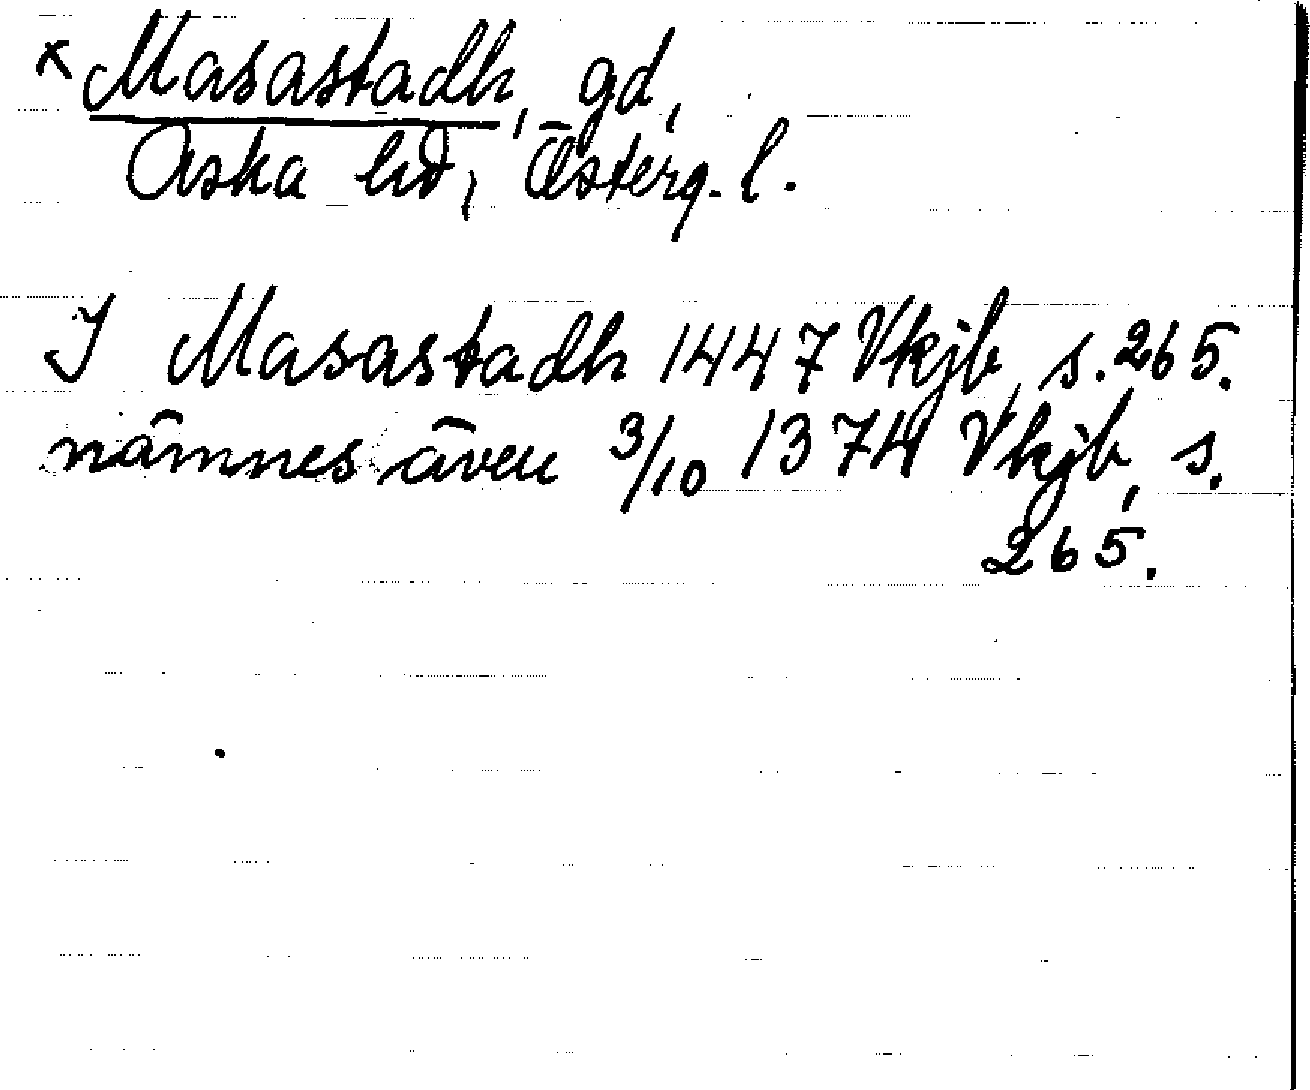 x Masastadh, gd,
Aska hd, Österg. l.
I Masastadh 1447 Vkjb, s. 265.
nämnes även 3/10 1374 Vkjb, s.
265.